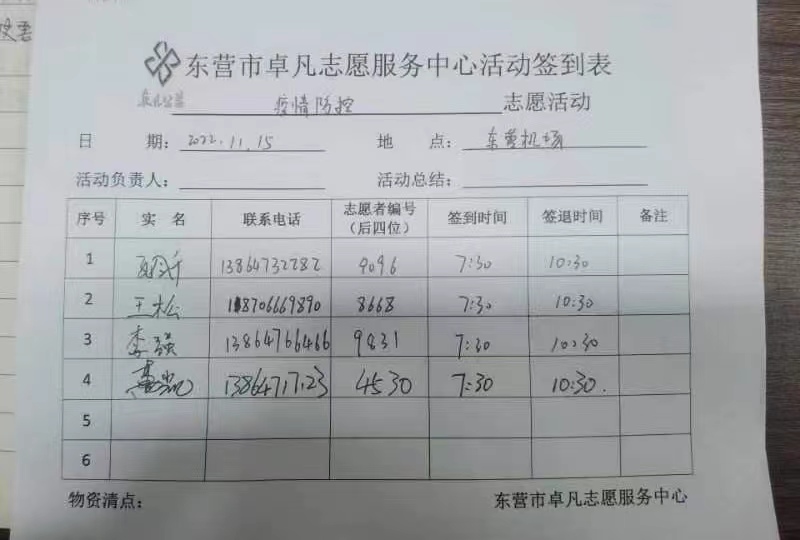 东营市卓凡志愿服务中心活动签到表
疫情防控 志愿活动
日 期：2022.11.15 地 点：东营机场
活动负责人： 活动总结：
序号 实 名 联系电话 志愿者编号（后四位） 签到时间 签退时间 备注
1 13864732282 9096 7:30 10:30
2 王松 18706669890 8668 7:30 10:30
3 李强 13864766466 9831 7:30 10:30
4 4530 7:30 10:30.
5
6
物资清点： 东营市卓凡志愿服务中心